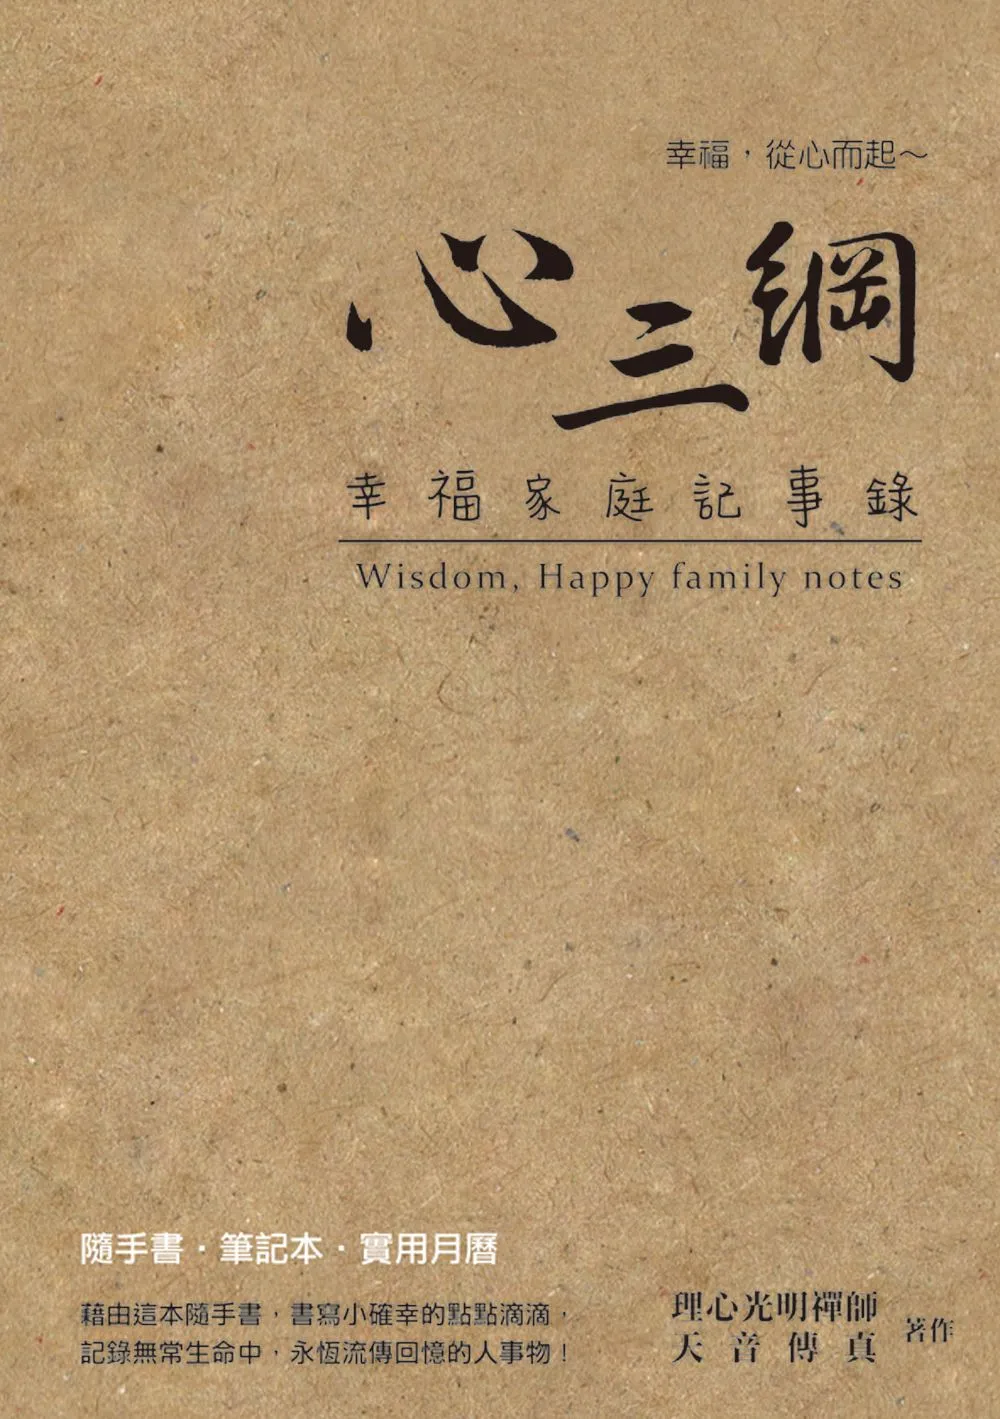 幸福，從心而起～
心三綱
幸福家庭記事錄
Wisdom, Happy family notes
隨手書・筆記本・實用月曆
藉由這本隨手書，書寫小確幸的點點滴滴，
記錄無常生命中，永恆流傳回憶的人事物！
理心光明禪師
天音傳真
著作